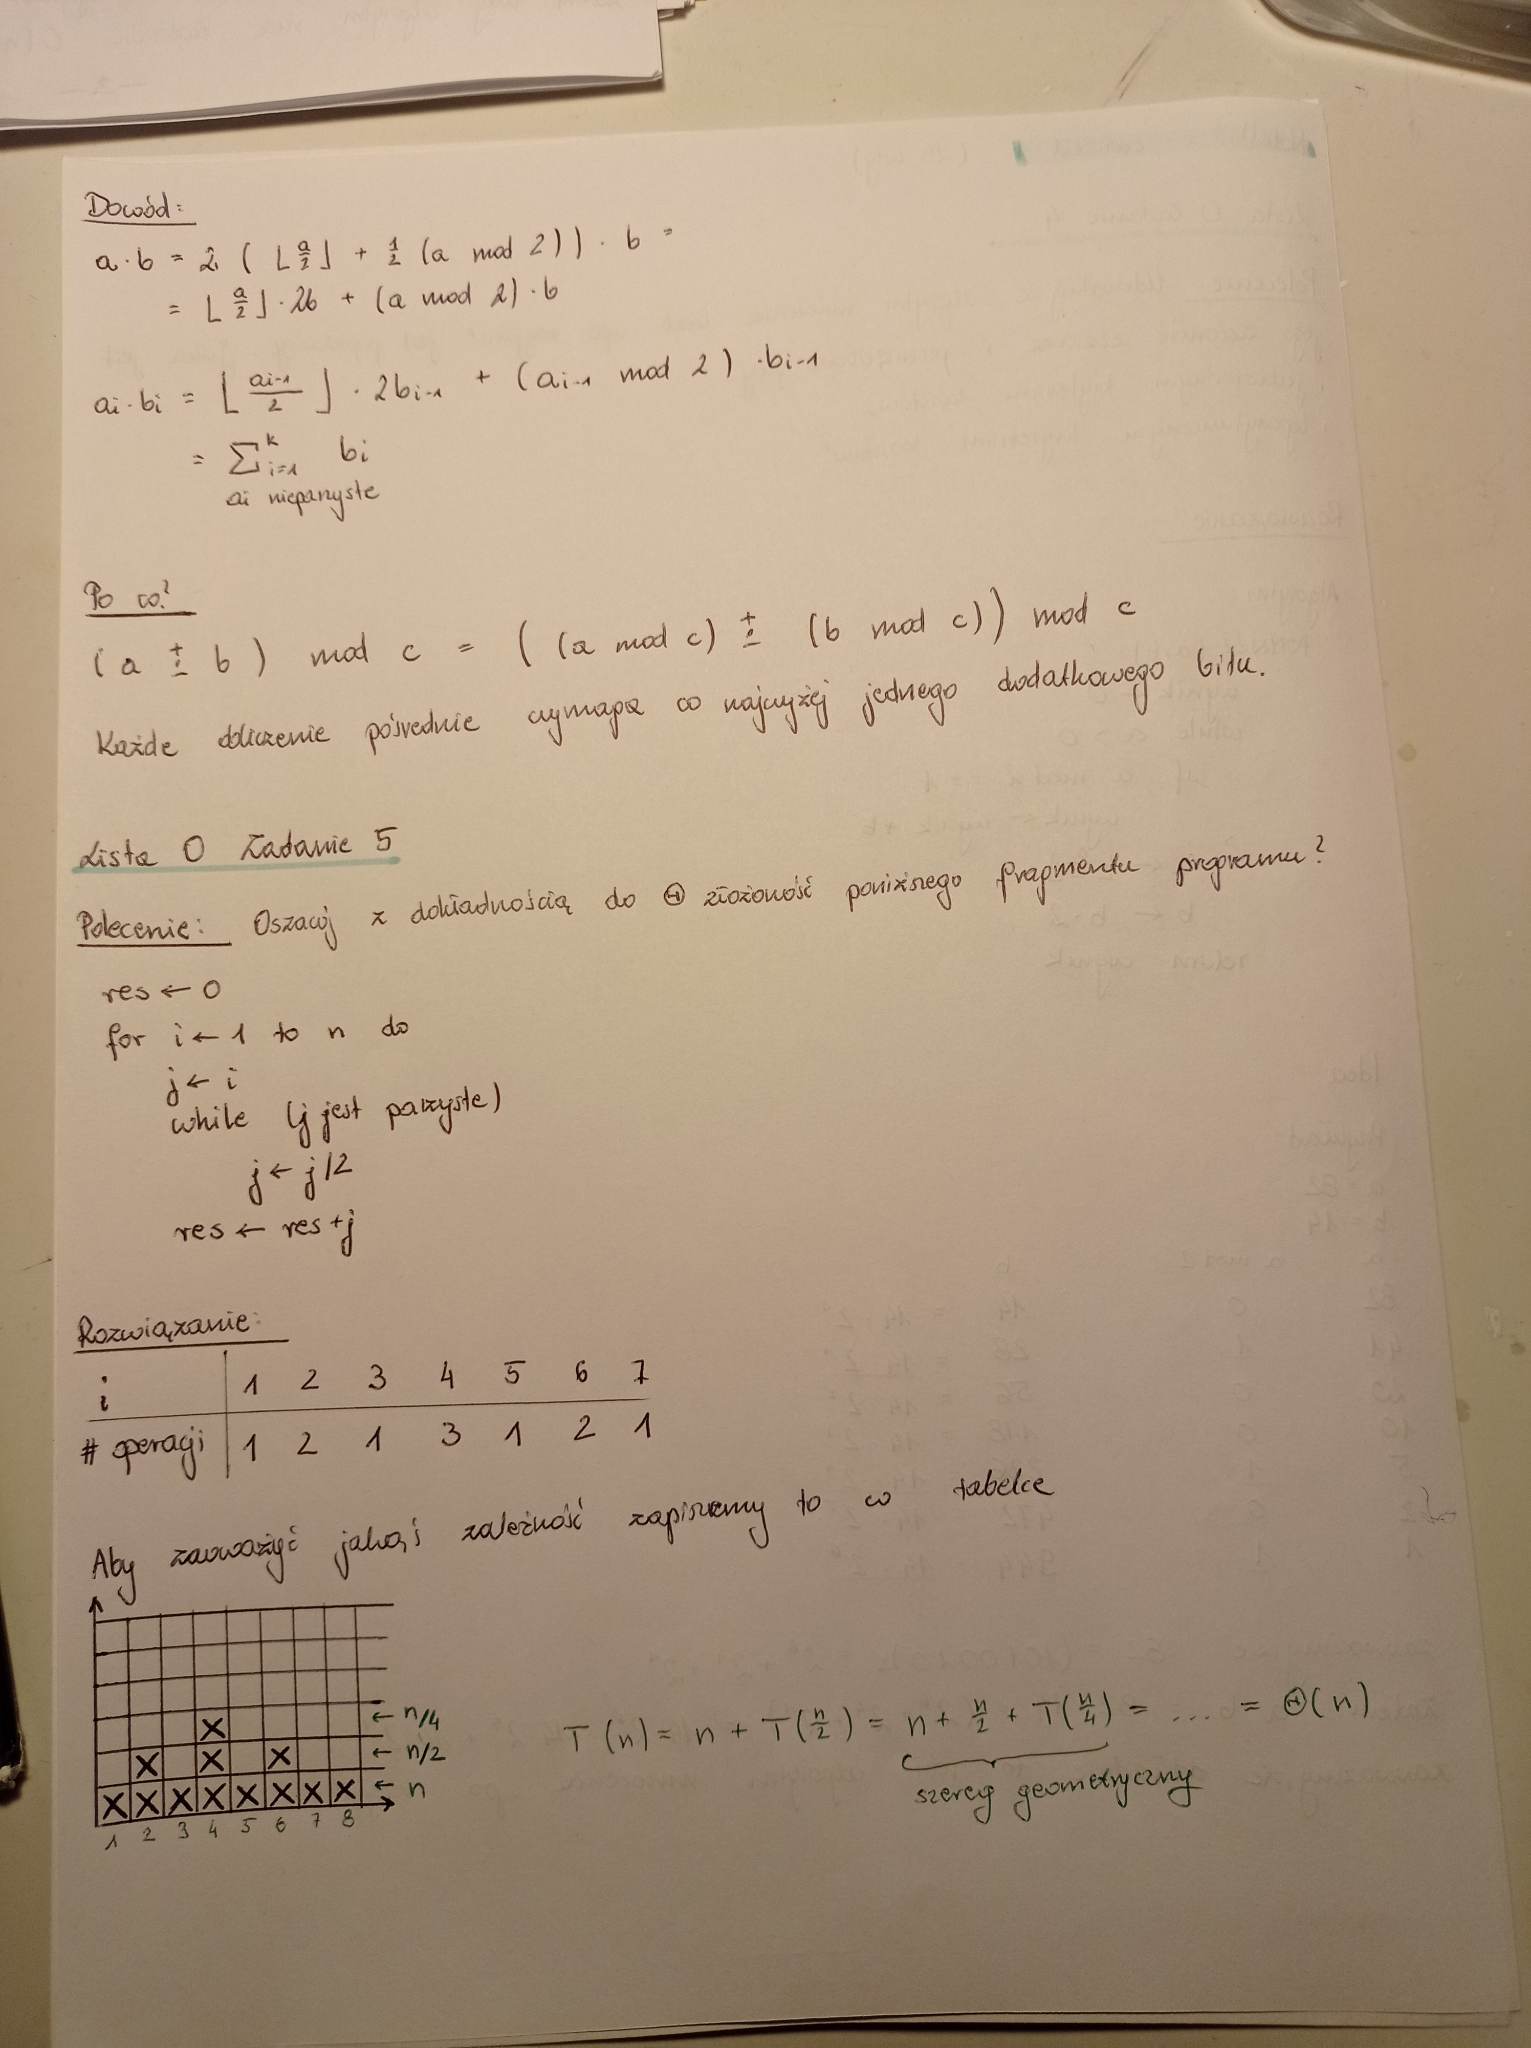 Dowód:
a·b = 2 ( ⌊a/2⌋ + 1/2 (a mod 2)) · b =
= ⌊a/2⌋ · 2b + (a mod 2) · b
ai·bi = ⌊ai-1/2⌋ · 2bi-1 + (ai-1 mod 2) · bi-1
= Σ i=1 k bi
ai nieparzyste
Po co?
(a ± b) mod c = ( (a mod c) ± (b mod c)) mod c
Każde obliczenie pośrednie wymaga co najwyżej jednego dodatkowego bitu.
Lista 0 Zadanie 5
Polecenie: Oszacuj z dokładnością do Θ złożoność poniższego fragmentu programu?
res ← 0
for i ← 1 to n do
j ← i
while (j jest parzyste)
j ← j/2
res ← res + j
Rozwiązanie:
i 1 2 3 4 5 6 7
# operacji 1 2 1 3 1 2 1
Aby zauważyć jakąś zależność zapiszemy to w tabelce
← n/4
← n/2
← n
1 2 3 4 5 6 7 8
T(n) = n + T(n/2) = n + n/2 + T(n/4) = .... = Θ(n)
szereg geometryczny